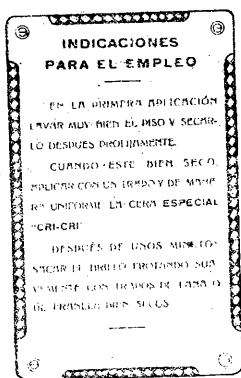 INDICACIONES
PARA EL EMPLEO
EN LA PRIMERA APLICACIÓN
LAVAR MUY BIEN EL PISO Y SECAR-
LO DESPUES PROLIJAMENTE.
CUANDO ESTE BIEN SECO,
APLICAR CON UN TRAPO Y DE MANE-
RA UNIFORME LA CERA ESPECIAL
"CRI-CRI"
DESPUÉS DE UNOS MINUTOS
SACAR EL BRILLO FROTANDO SUA-
VEMENTE CON TRAPOS DE LANA O
DE FRANELA BIEN SECOS